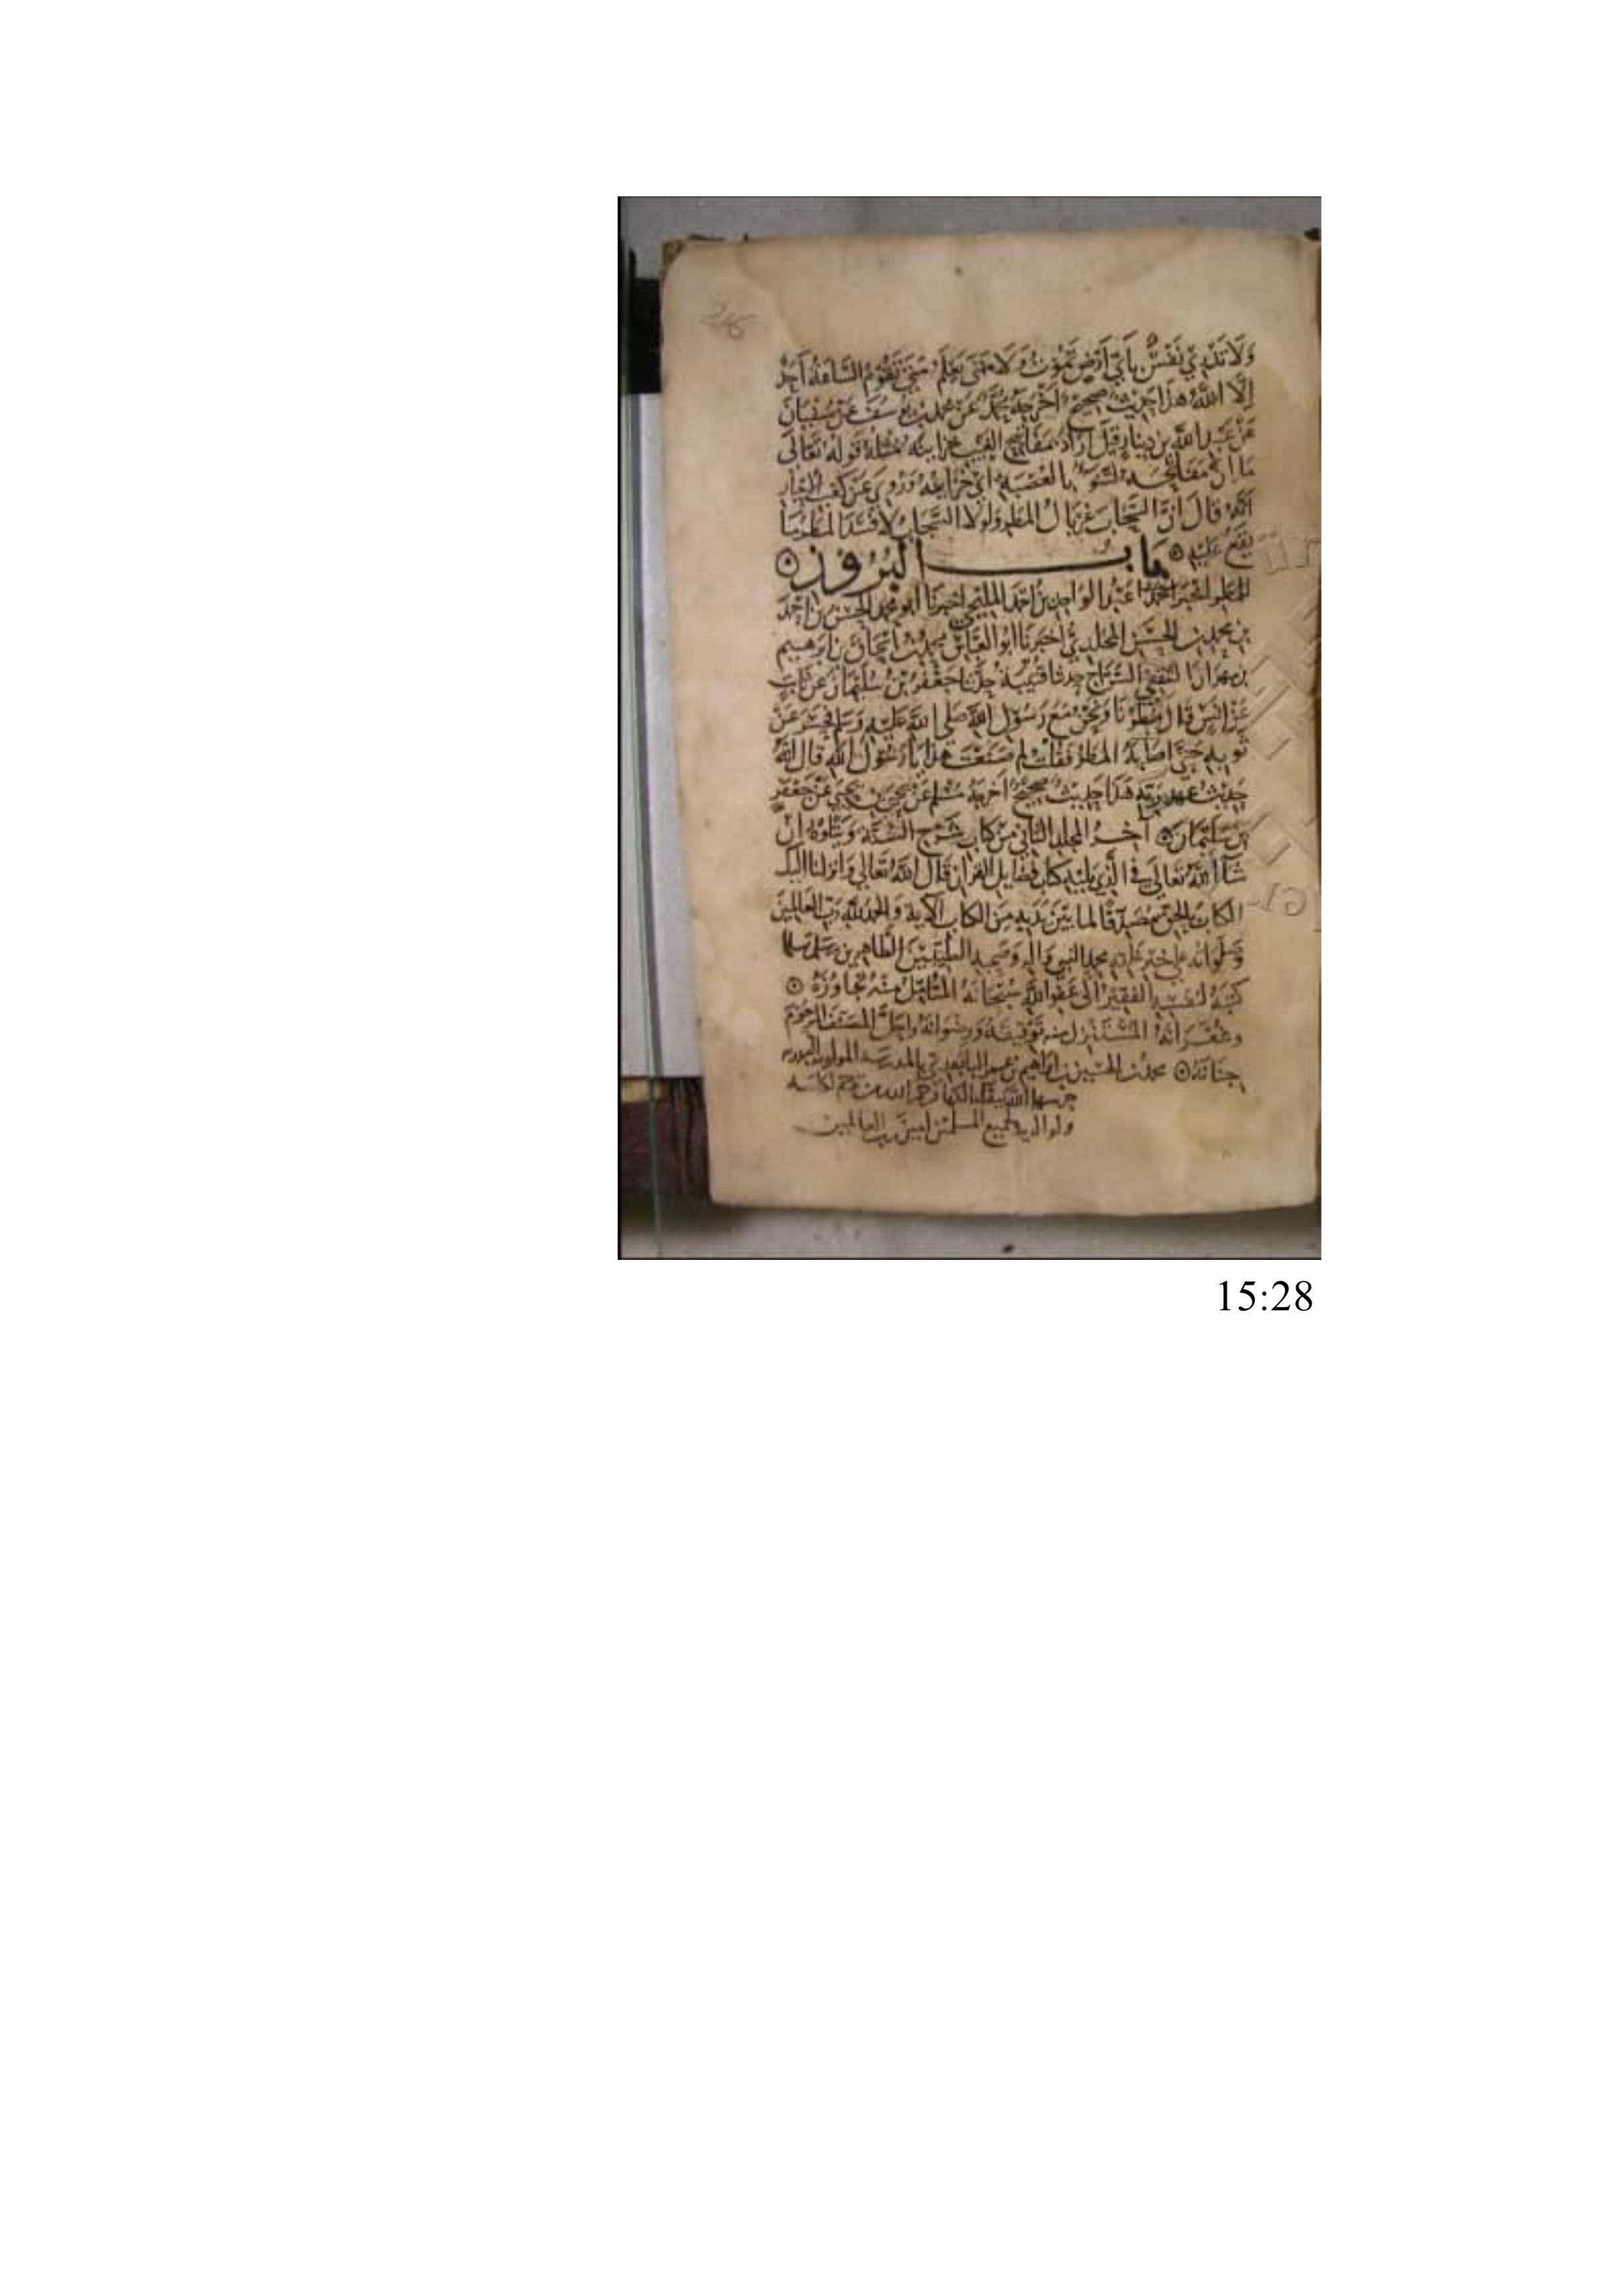 246
وَلَا تَدْرِي نَفْسٌ بِأَيِّ أَرْضٍ تَمُوتُ وَلَا يَعْلَمُ مَتَى تَقُومُ السَّاعَةُ أَحَدٌ
إِلَّا اللَّهُ هذا حديث صحيح أخرجه محمد عن محمد بن يوسف عن سفيان
عن عبد الله بن دينار قيل أراد مفاتيح الغيب خزاينه مثله قوله تعالى
ما ان مفاتحه لتنوء بالعصبة اي خزاينه وروي عن كعب الاحبار
انه قال ان السحاب غربال المطر ولولا السحاب لافسد المطر ما
يقع عليه باب البروز
للمطر اخبرنا عبد الواحد بن احمد المليحي اخبرنا ابو محمد الحسن بن احمد
بن محمد بن الحسن المخلدي اخبرنا ابو العباس محمد بن اسحاق بن ابرهيم
بن مهران الثقفي السراج حدثنا قتيبة حدثنا جعفر بن سليمان عن ثابت
عن انس قال مطرنا ونحن مع رسول الله صلى الله عليه وسلم فحسر عن
ثوبه حتى اصابه المطر فقلت لم صنعت هذا يا رسول الله قال انه
حديث عهد بربه هذا حديث صحيح اخرجه مسلم عن يحيى بن يحيى عن جعفر
بن سليمان آخر المجلد الثاني من كتاب شرح السنة ويتلوه ان
شاء الله تعالى في الذي يليه كتاب فضايل القران قال الله تعالى وانزلنا اليك
الكتاب بالحق مصدقا لما بين يديه من الكتاب الآية والحمد لله رب العالمين
وصلواته على محمد النبي واله وصحبه الطيبين الطاهرين وسلم
كتبه لنفسه الفقير الى عفو الله سبحانه المتامل منه تجاوزه
وغفرانه المستنزل منه توفيقه ورضوانه
جنانه محمد بن الحسين بن ابراهيم بن بالمدرسة
حرسها الله
ولوالديه ولجميع المسلمين امين رب العالمين
15:28